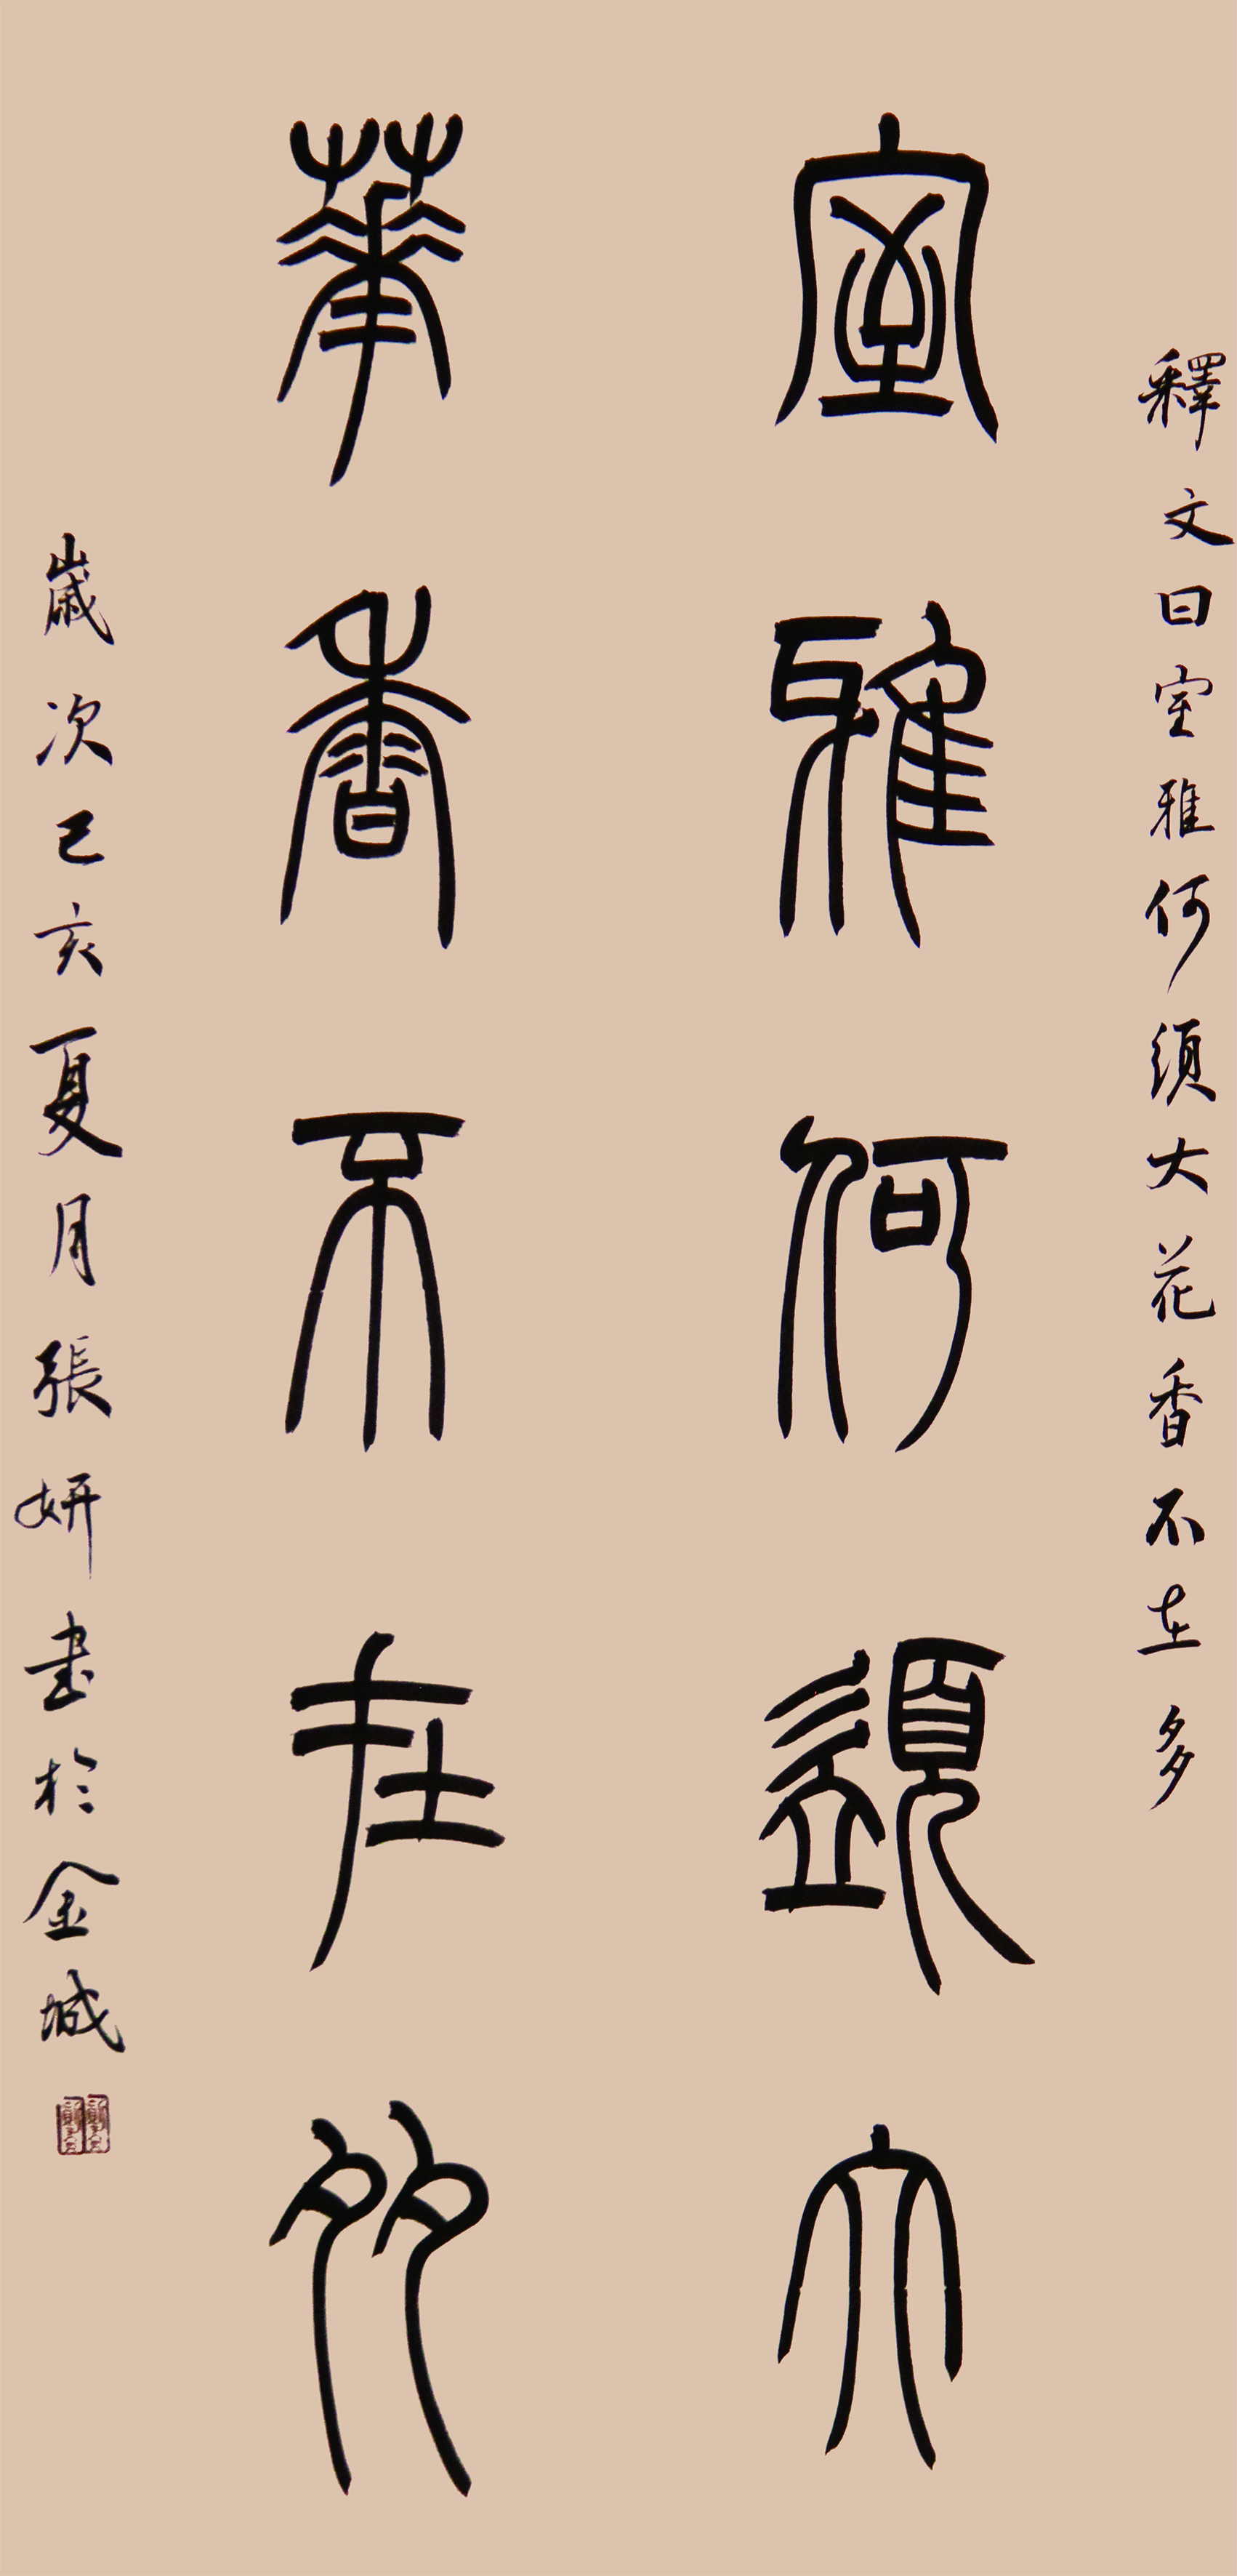 釋文曰室雅何須大花香不在多
室雅何須大
華香不在多
歲次己亥夏月張妍書於金城